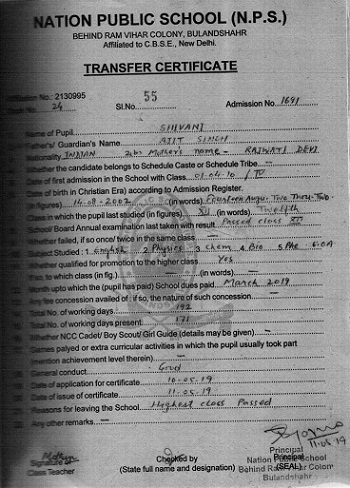 NATION PUBLIC SCHOOL (N.P.S.)
BEHIND RAM VIHAR COLONY, BULANDSHAHR
Affiliated to C.B.S.E., New Delhi.
TRANSFER CERTIFICATE
Affiliation No.: 2130995
No. 24 Sl.No. 55 Admission No. 1691
Name of Pupil SHIVANI
Fathers'/ Guardian's Name AJIT SINGH
Nationality INDIAN Mother's name - RAJWATI DEVI
Whether the candidate belongs to Schedule Caste or Schedule Tribe —
Date of first admission in the School with Class 01-04-10 / IV
Date of birth in Christian Era) according to Admission Register.
(in figures) 14-08-2002 (in words)
Class in which the pupil last studied (in figures) XII (in words) Twelfth
School/ Board Annual examination last taken with result Passed class XII
Whether failed, if so once/ twice in the same class
Subject Studied : 1 English 2 Physics 3 Chem 4 Bio 5 Phe 6
Whether qualified for promotion to the higher class Yes
If so, to which class (in fig.) (in words) —
Month upto which the (pupil has paid) School dues paid March 2019
Any fee concession availed of : if so, the nature of such concession —
Total No. of working days 192
Total No. of working days present 171
Whether NCC Cadet/ Boy Scout/ Girl Guide (details may be given) —
Games palyed or extra curricular activities in which the pupil usually took part
(mention achievement level therein) —
General conduct Good
Date of application for certificate 10-05-19
Date of issue of certificate 11-05-19
Reasons for leaving the School Highest class Passed
Any other remarks —
11-05-19
Signature of Checked by Principal
Class Teacher (State full name and designation) (SEAL)
Principal
Nation Public School
Behind Ram Vihar Colony
Bulandshahr